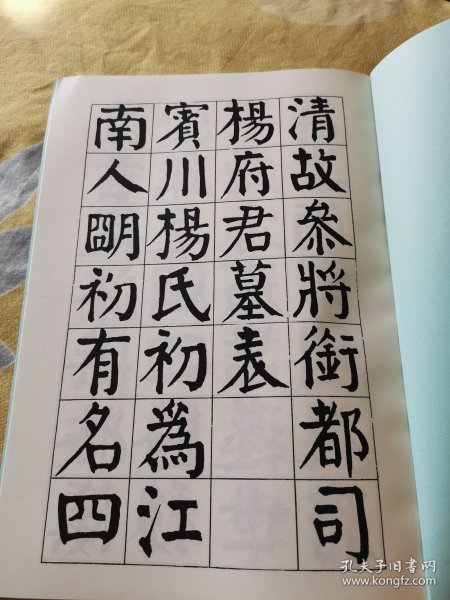 清故叅將銜都司
楊府君墓表
賓川楊氏初為江
南人朙初有名四
孔夫子旧书网
www.kongfz.com